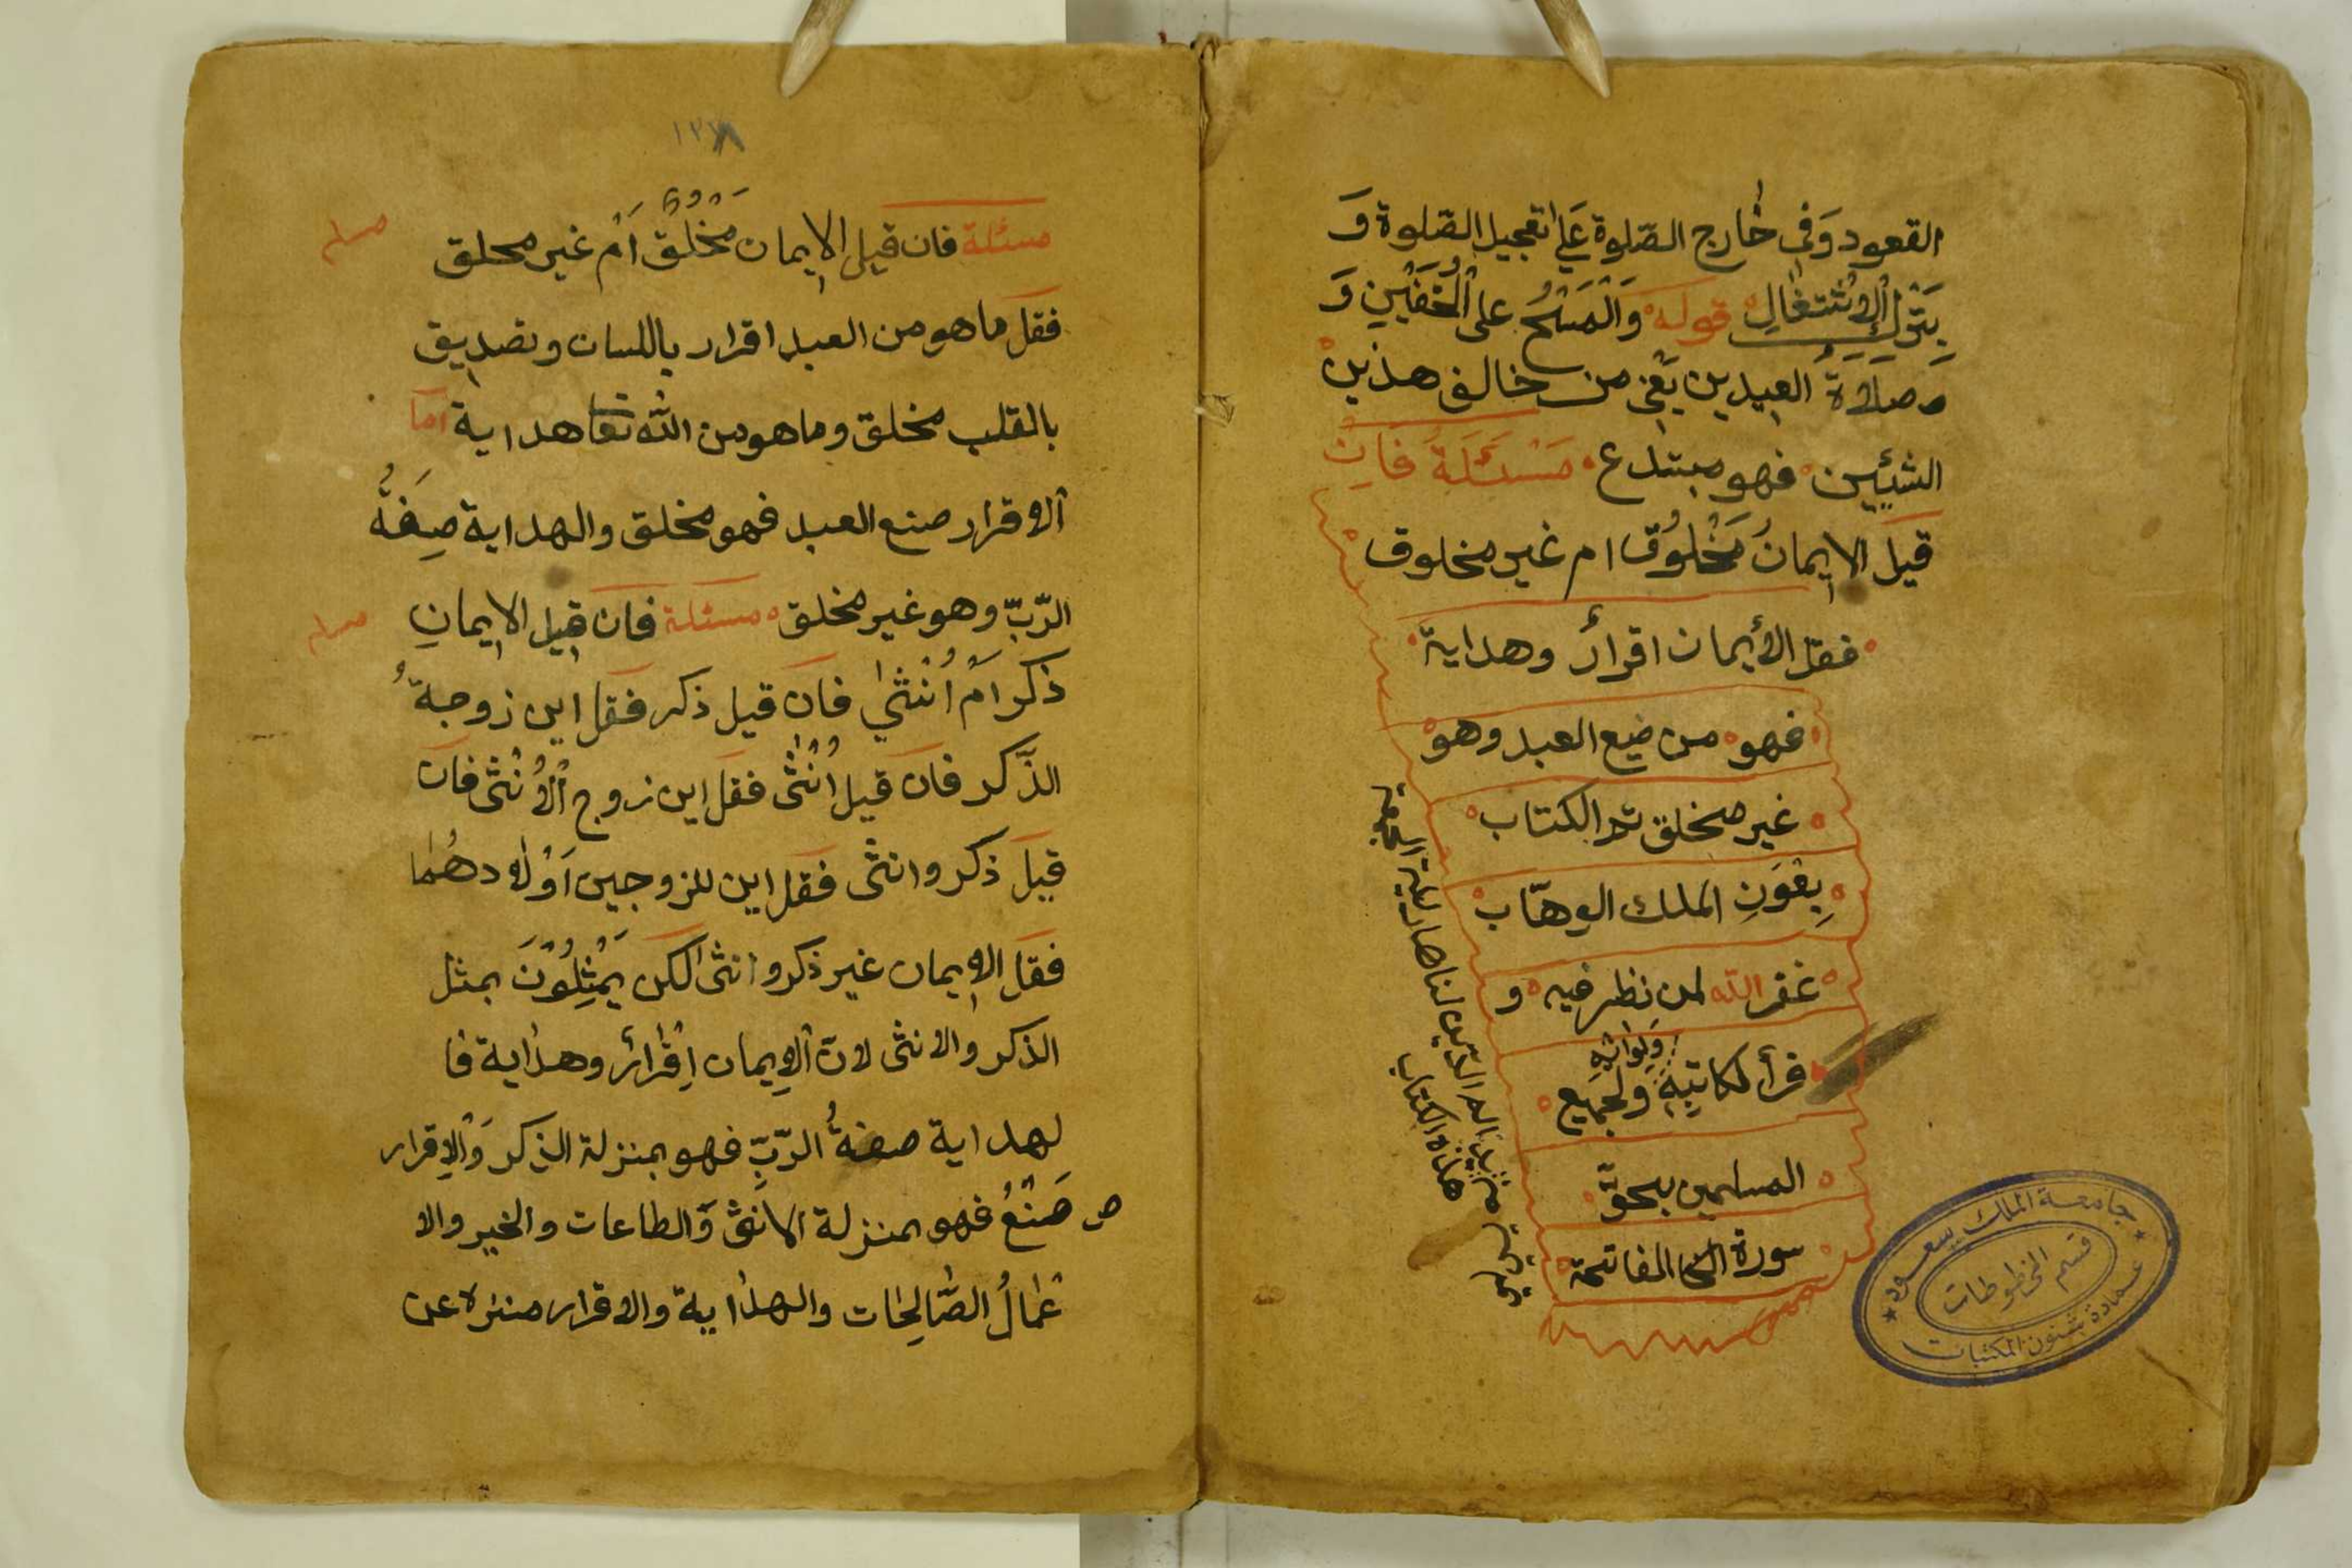 القعود وَفي خارج الصّلوة عَلي تعجيل الصّلوة وَ
بِتَرْكِ الْاِشْتِغَالِ قوله وَالْمَسْحُ على الْخُفَّيْنِ وَ
صلاة العيدين يَعْني من خالف هذين
الشيئين فهو مبتدع مَسْئَلَةٌ فَاِنْ
قيل الايمانُ مَخْلُوقٌ ام غير مخلوق
فقل الأيمان اقرارٌ وهداية
فهو من ضع العبد وهو
غير مخلق تم الكتاب
بِعَوَنِ الملك الوهّاب
غفر الله لمن نظر فيه و
قرأ لكاتبِهِ ولجميع
المسلمين بحق
سورة الفاتحة
هذه الكتاب
جامعة الملك سعود
قسم المخطوطات
عمادة شئون المكتبات
١٢٨
مسئلة فان قيل الايمان مَخْلُقٌ اَمْ غير محلق
فقل ما هو من العبد اقرار باللسان وتصديق
بالقلب مخلق وما هو من الله تعا هداية اما
الاقرار صنع العبد فهو مخلق والهداية صِفَةُ
الرّبّ وهو غير مخلق مسئلة فان قيل الايمانِ
ذكر اَمْ اُنْثٰي فان قيل ذكر فقل اين زوجةُ
الذَّكر فان قيل اُنْثٰى فقل اين زوج الْاُنْثٰى فان
قيل ذكر وانثى فقل اين للزوجين اَوْلادهُمَا
فقل الايمان غير ذكر وانثى لكن يَمْثِلُوْنَ بمثل
الذكر والانثى لانّ الايمان اِقْرَارٌ وهداية فا
لهداية صفةُ الرّبِّ فهو بمنزلة الذكر وَالْاِقرار
صَنْعُ فهو بمنزلة الانثى وَالطاعات والخير والا
عْمَالُ الصَّالِحَات والهداية والاقرار منزه عن